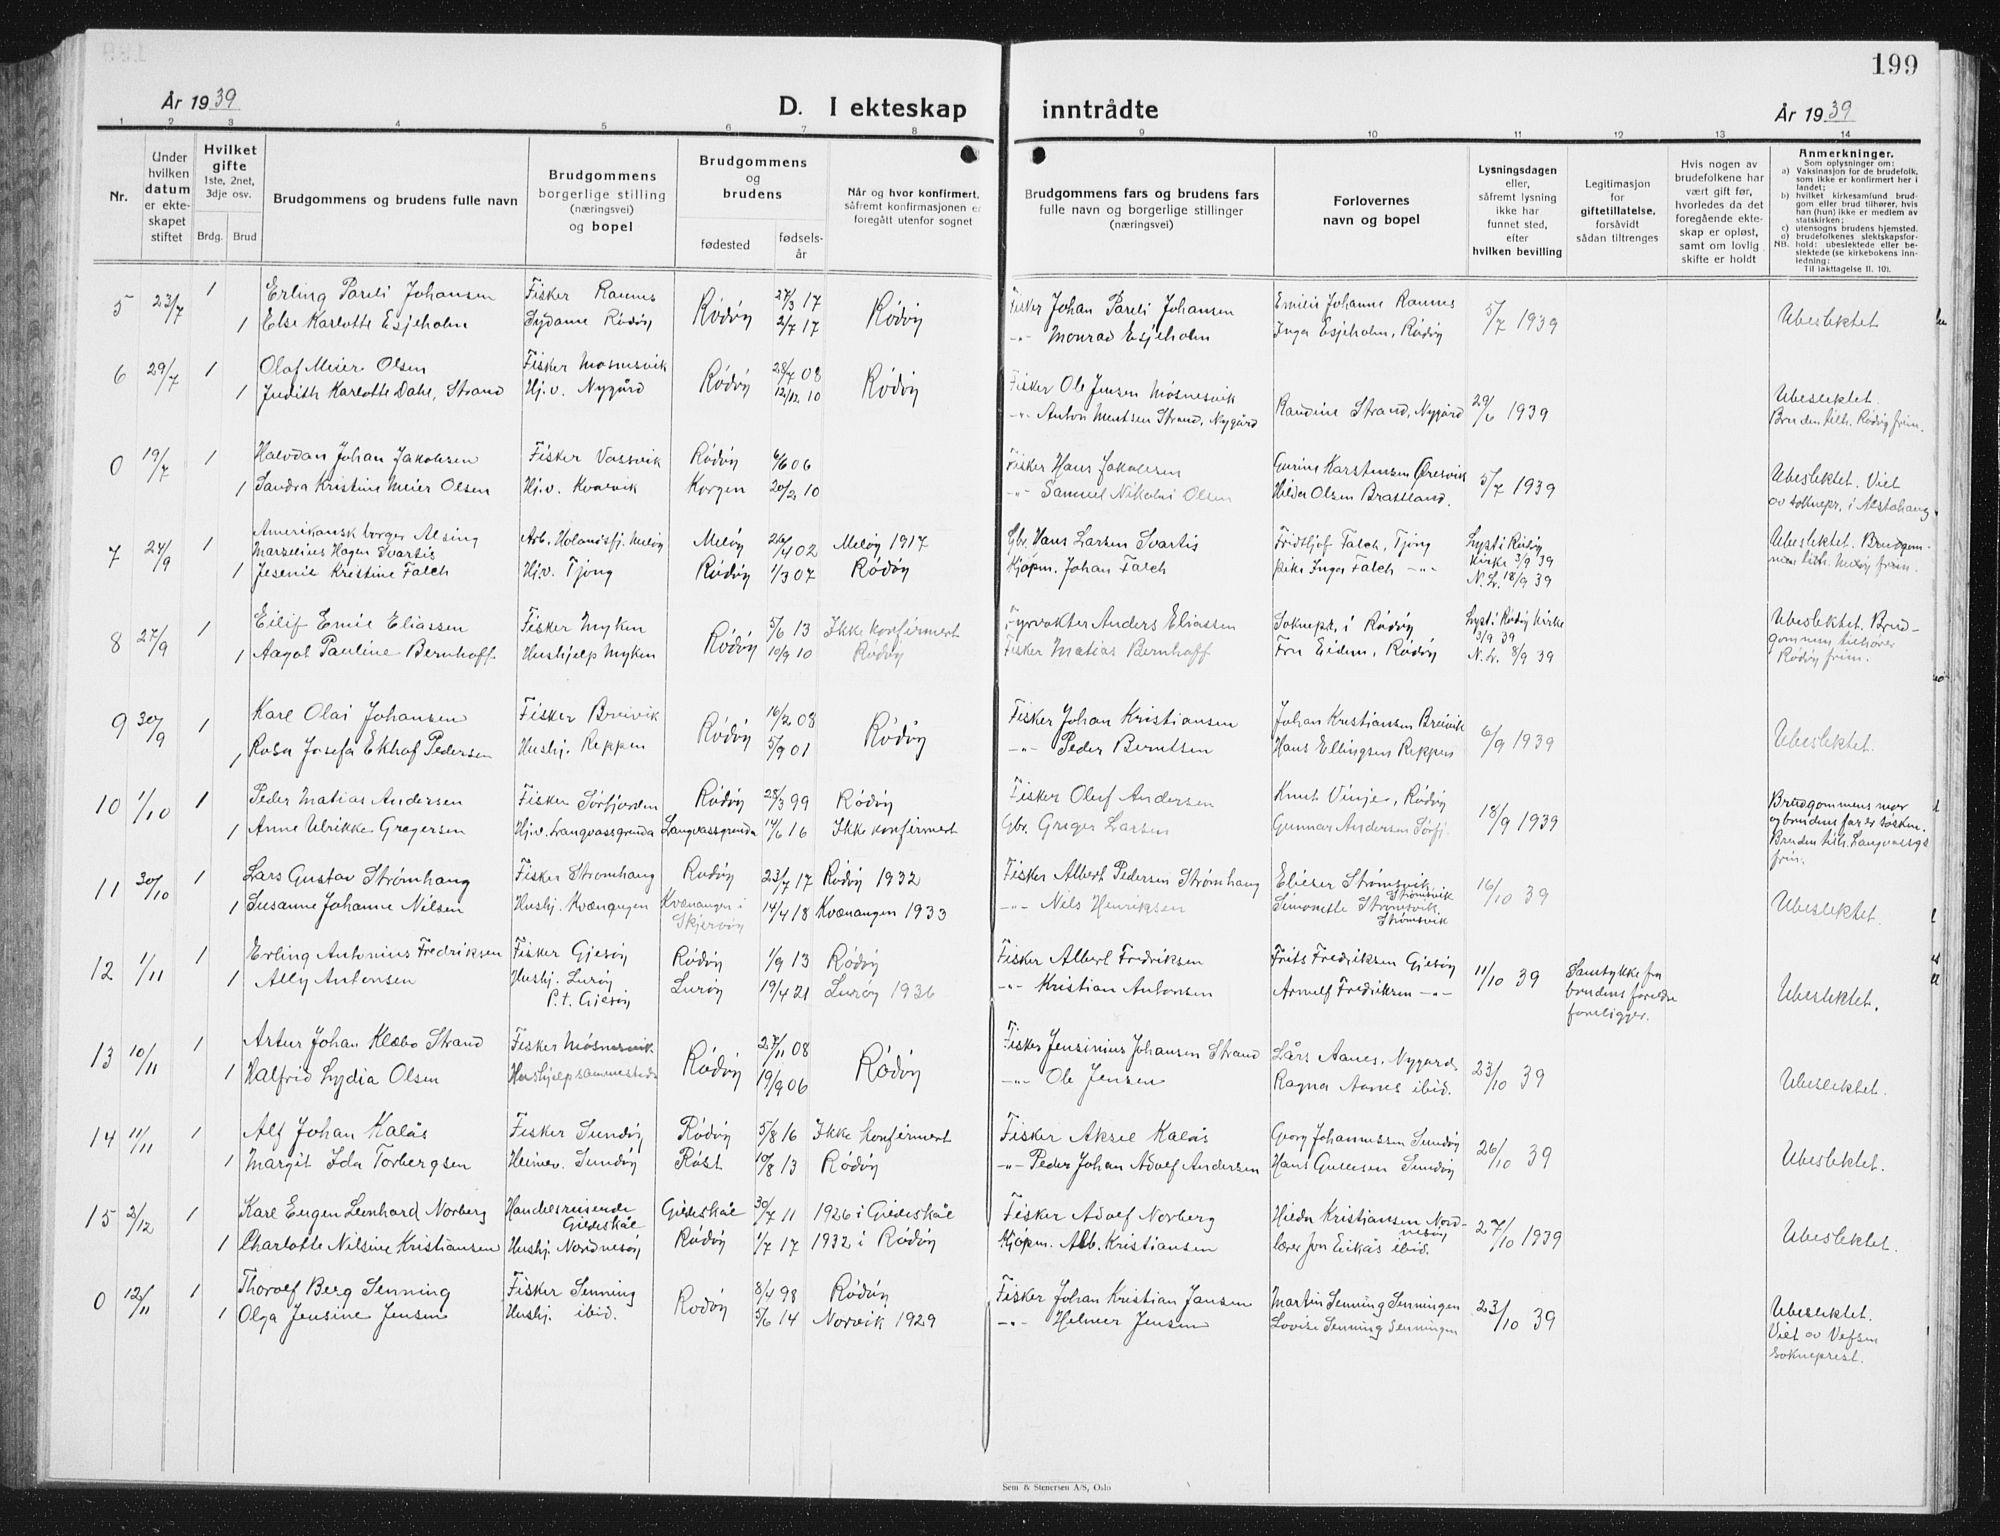 199
År 1939
D. I ekteskap inntrådte
År 1939
1 2 3 4 5 6 7 8 9 10 11 12 13 14
Nr.
Under hvilken datum er ekteskapet stiftet
Hvilket gifte 1ste, 2net, 3dje osv.
Brdg. Brud
Brudgommens og brudens fulle navn
Brudgommens borgerlige stilling (næringsvei) og bopel
Brudgommens og brudens
fødested
fødselsår
Når og hvor konfirmert, såfremt konfirmasjonen er foregått utenfor sognet
Brudgommens fars og brudens fars fulle navn og borgerlige stillinger (næringsvei)
Forlovernes navn og bopel
Lysningsdagen eller, såfremt lysning ikke har funnet sted, efter hvilken bevilling
Legitimasjon for giftetillatelse, forsåvidt sådan tiltrenges
Hvis nogen av brudefolkene har vært gift før, hvorledes da det foregående ekteskap er opløst, samt om lovlig skifte er holdt
Anmerkninger.
Som oplysninger om:
a) Vaksinasjon for de brudefolk, som ikke er konfirmert her i landet;
b) hvilket kirkesamfund brudgom eller brud tilhører, hvis han (hun) ikke er medlem av statskirken;
c) utensogns brudens hjemsted.
d) brudefolkenes slektskapsforhold: ubeslektede eller beslektede (se kirkebokens innledning;
NB.
Til iakttagelse II. 10).
5 23/7 1 Erling Pareli Johansen Fisker Rannes Rødøy 27/3 17 Rødøy Fisker Johan Pareli Johansen Emilie Johanne Rannes 5/7 1939 Ubeslektet
1 Else Karlotte Esjeholm Sydame Rødøy 2/7 17 -"- Monrad Esjeholm Inga Esjeholm, Rødøy
6 29/7 1 Olaf Meier Olsen Fisker Mosnesvik Rødøy 28/7 08 Rødøy Fisker Ole Jensen Møsnesvik 29/6 1939 Ubeslektet.
1 Judith Karlotte Dahl, Strand Hj.v. Nygård 12/12 10 -"- Anton Mentsen Strand, Nygård Raudine Strand, Nygård Bruden tilh. Rødøy frim.
0 19/7 1 Halvdan Johan Jakobsen Fisker Vassvik Rødøy 6/6 06 Fisker Hans Jakobsen Gurine Karstensen Øresvik 5/7 1939 Ubeslektet. Viet
1 Sandra Kristine Meier Olsen Hj.v. Kvalvik Korgen 20/2 10 -"- Samuel Nikolai Olsen Hilda Olsen Bratland. av soknepr. i Alstahaug.
7 24/9 1 Amerikansk borger Alsing Marselius Hagen Svartis Arb. Holandsfj. Meløy Meløy 26/4 02 Meløy 1917 Gbr. Hans Larsen Svartis Fridtjof Falch, Tjong Lyst i Rødøy Kirke 3/9 39 Ubeslektet. Brudgommen tilh. Meløy frim.
1 Jesenie Kristine Falch Hj.v. Tjong Rødøy 1/3 07 Rødøy Kjøpm. Johan Falch pike Inga Falch -"- N.L. 18/9 39
8 27/9 1 Eilif Emil Eliassen Fisker Myken Rødøy 5/6 13 Ikke konfirmert Fyrvokter Anders Eliassen Soknepr. i Rødøy Lyst i Rødøy Kirke 3/9 39 Ubeslektet. Brudgommen tilhører Rødøy frim.
1 Aagot Pauline Bernhoff Hushjelp Myken 10/9 10 Rødøy Fisker Matias Bernhoff Fru Eidem, Rødøy N.L. 8/9 39
9 30/9 1 Karl Olai Johansen Fisker Breivik Rødøy 16/2 08 Rødøy Fisker Johan Kristiansen Johan Kristiansen Breivik 6/9 1939 Ubeslektet.
1 Rosa Josefa Ekhof Pedersen Hushj. Reppen 5/9 01 -"- Peder Berntsen Hans Ellingsen Reppen
10 1/10 1 Peder Matias Andersen Fisker Sørfjorden Rødøy 28/3 99 Rødøy Fisker Oluf Andersen Knut Vinje, Rødøy 18/9 1939 Brudgommens mor og brudens far er søsken. Bruden tilh. Langvassgr. frim.
1 Anne Ulrikke Gregersen Hj.v. Langvassgrenda Langvassgrenda 14/6 16 Ikke konfirmert Gbr. Greger Larsen Gunnar Andersen Sørfj.
11 30/10 1 Lars Gustav Strømhaug Fisker Strømhaug Rødøy 23/7 17 Rødøy 1932 Fisker Albert Pedersen Strømhaug Elieser Strømsvik Strømsvik 16/10 39 Ubeslektet.
1 Susanne Johanne Nilsen Hushj. Kvænangen Kvænangen i Skjervøy 14/4 18 Kvænangen 1933 -"- Nils Henriksen Simonette Strømsvik Strømsvik
12 1/11 1 Erling Antonius Fredriksen Fisker Gjesøy Rødøy 1/9 13 Rødøy Fisker Albert Fredriksen Frits Fredriksen Gjesøy 11/10 39 Samtykke fra brudens foreldre foreligger. Ubeslektet.
1 Ally Antonsen Hushj. Lurøy P.t. Gjesøy Lurøy 19/4 21 Lurøy 1936 -"- Kristian Antonsen Arnulf Fredriksen -"-
13 10/11 1 Artur Johan Klæbo Strand Fisker Møsnesvik Rødøy 27/11 08 Rødøy Fisker Jensinius Johansen Strand Lårs Aanes, Nygård. 23/10 39 Ubeslektet.
1 Halfrid Lydia Olsen Hushjelp sammesteds 19/9 06 -"- Ole Jensen Ragna Aanes ibid.
14 11/11 1 Alf Johan Kalås Fisker Sundøy Rødøy 5/8 16 Ikke konfirmert Fisker Aksel Kalås Georg Johannessen Sundøy 26/10 39 Ubeslektet.
1 Margit Ida Torbergsen Heimev. Sundøy Røst 10/8 13 Rødøy -"- Peder Johan Adolf Andersen Hans Gullesen Sundøy
15 2/12 1 Karl Eugen Leonhard Norberg Handelsreisende Gildeskål Gildeskål 30/7 11 1926 i Gildeskål Fisker Adolf Norberg Hilda Kristiansen Nordnesøy 27/10 1939 Ubeslektet.
1 Charlotte Nilsine Kristiansen Hushj. Nordnesøy Rødøy 1/7 17 1932 i Rødøy Kjøpm. Alb. Kristiansen lærer Jon Eikås ibid.
0 12/11 1 Thoralf Berg Senning Fisker Senning Rødøy 8/4 98 Rødøy Fisker Johan Kristian Jansen Martin Senning Senningen 23/10 39 Ubeslektet. Viet av Vefsn sokneprest.
1 Olga Jensine Jensen Hushj. ibid. 5/6 14 Narvik 1929 -"- Helmer Jensen Lovise Senning Senningen
Sem & Stenersen A/S, Oslo